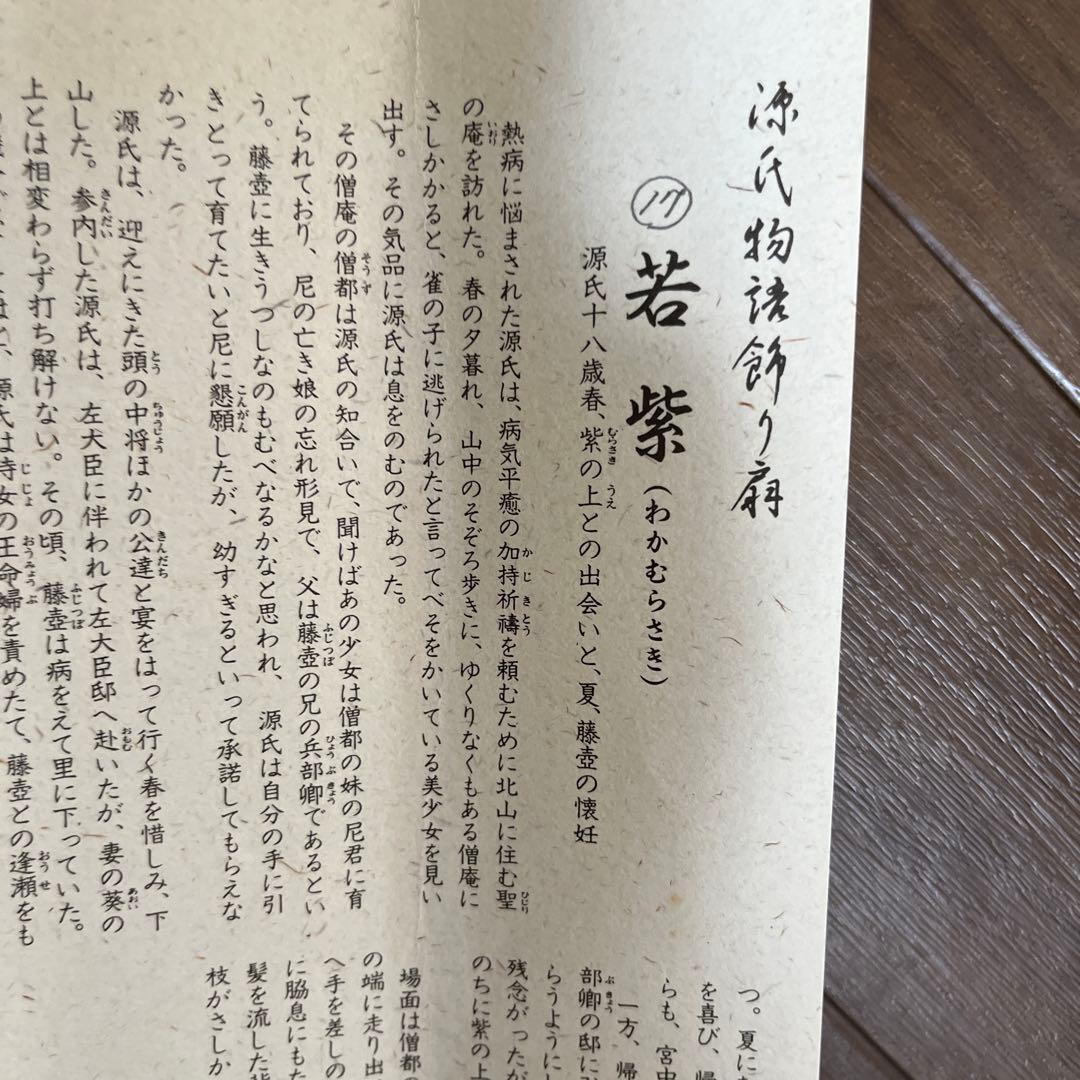 源氏物語飾り扇
17 若紫（わかむらさき）
源氏十八歳春、紫の上との出会いと、夏、藤壺の懐妊
熱病に悩まされた源氏は、病気平癒の加持祈禱を頼むために北山に住む聖
の庵を訪れた。春の夕暮れ、山中のそぞろ歩きに、ゆくりなくもある僧庵に
さしかかると、雀の子に逃げられたと言ってべそをかいている美少女を見い
出す。その気品に源氏は息をのむのであった。
その僧庵の僧都は源氏の知合いで、聞けばあの少女は僧都の妹の尼君に育
てられており、尼の亡き娘の忘れ形見で、父は藤壺の兄の兵部卿であるとい
う。藤壺に生きうつしなのもむべなるかなと思われ、源氏は自分の手に引
きとって育てたいと尼に懇願したが、幼すぎるといって承諾してもらえな
かった。
源氏は、迎えにきた頭の中将ほかの公達と宴をはって行く春を惜しみ、下
山した。参内した源氏は、左大臣に伴われて左大臣邸へ赴いたが、妻の葵の
上とは相変わらず打ち解けない。その頃、藤壺は病をえて里に下っていた。
源氏は侍女の王命婦を責めたて、藤壺との逢瀬をも
つ。夏に
を喜び、帰
らも、宮中
一方、帰
部卿の邸に
らうように
残念がったが
のちに紫の上
場面は僧都の
の端に走り出
へ手を差しの
に脇息にもた
髪を流した
枝がさしか